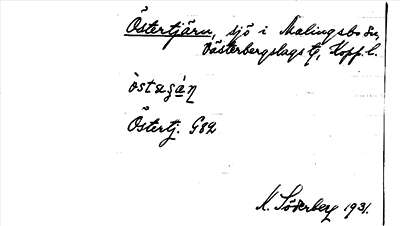 Östertjärn, sjö i Malingsbo sn,
Västerbergslags tg, Kopp. l.
Östertj. G82
N. Söderberg 1931.